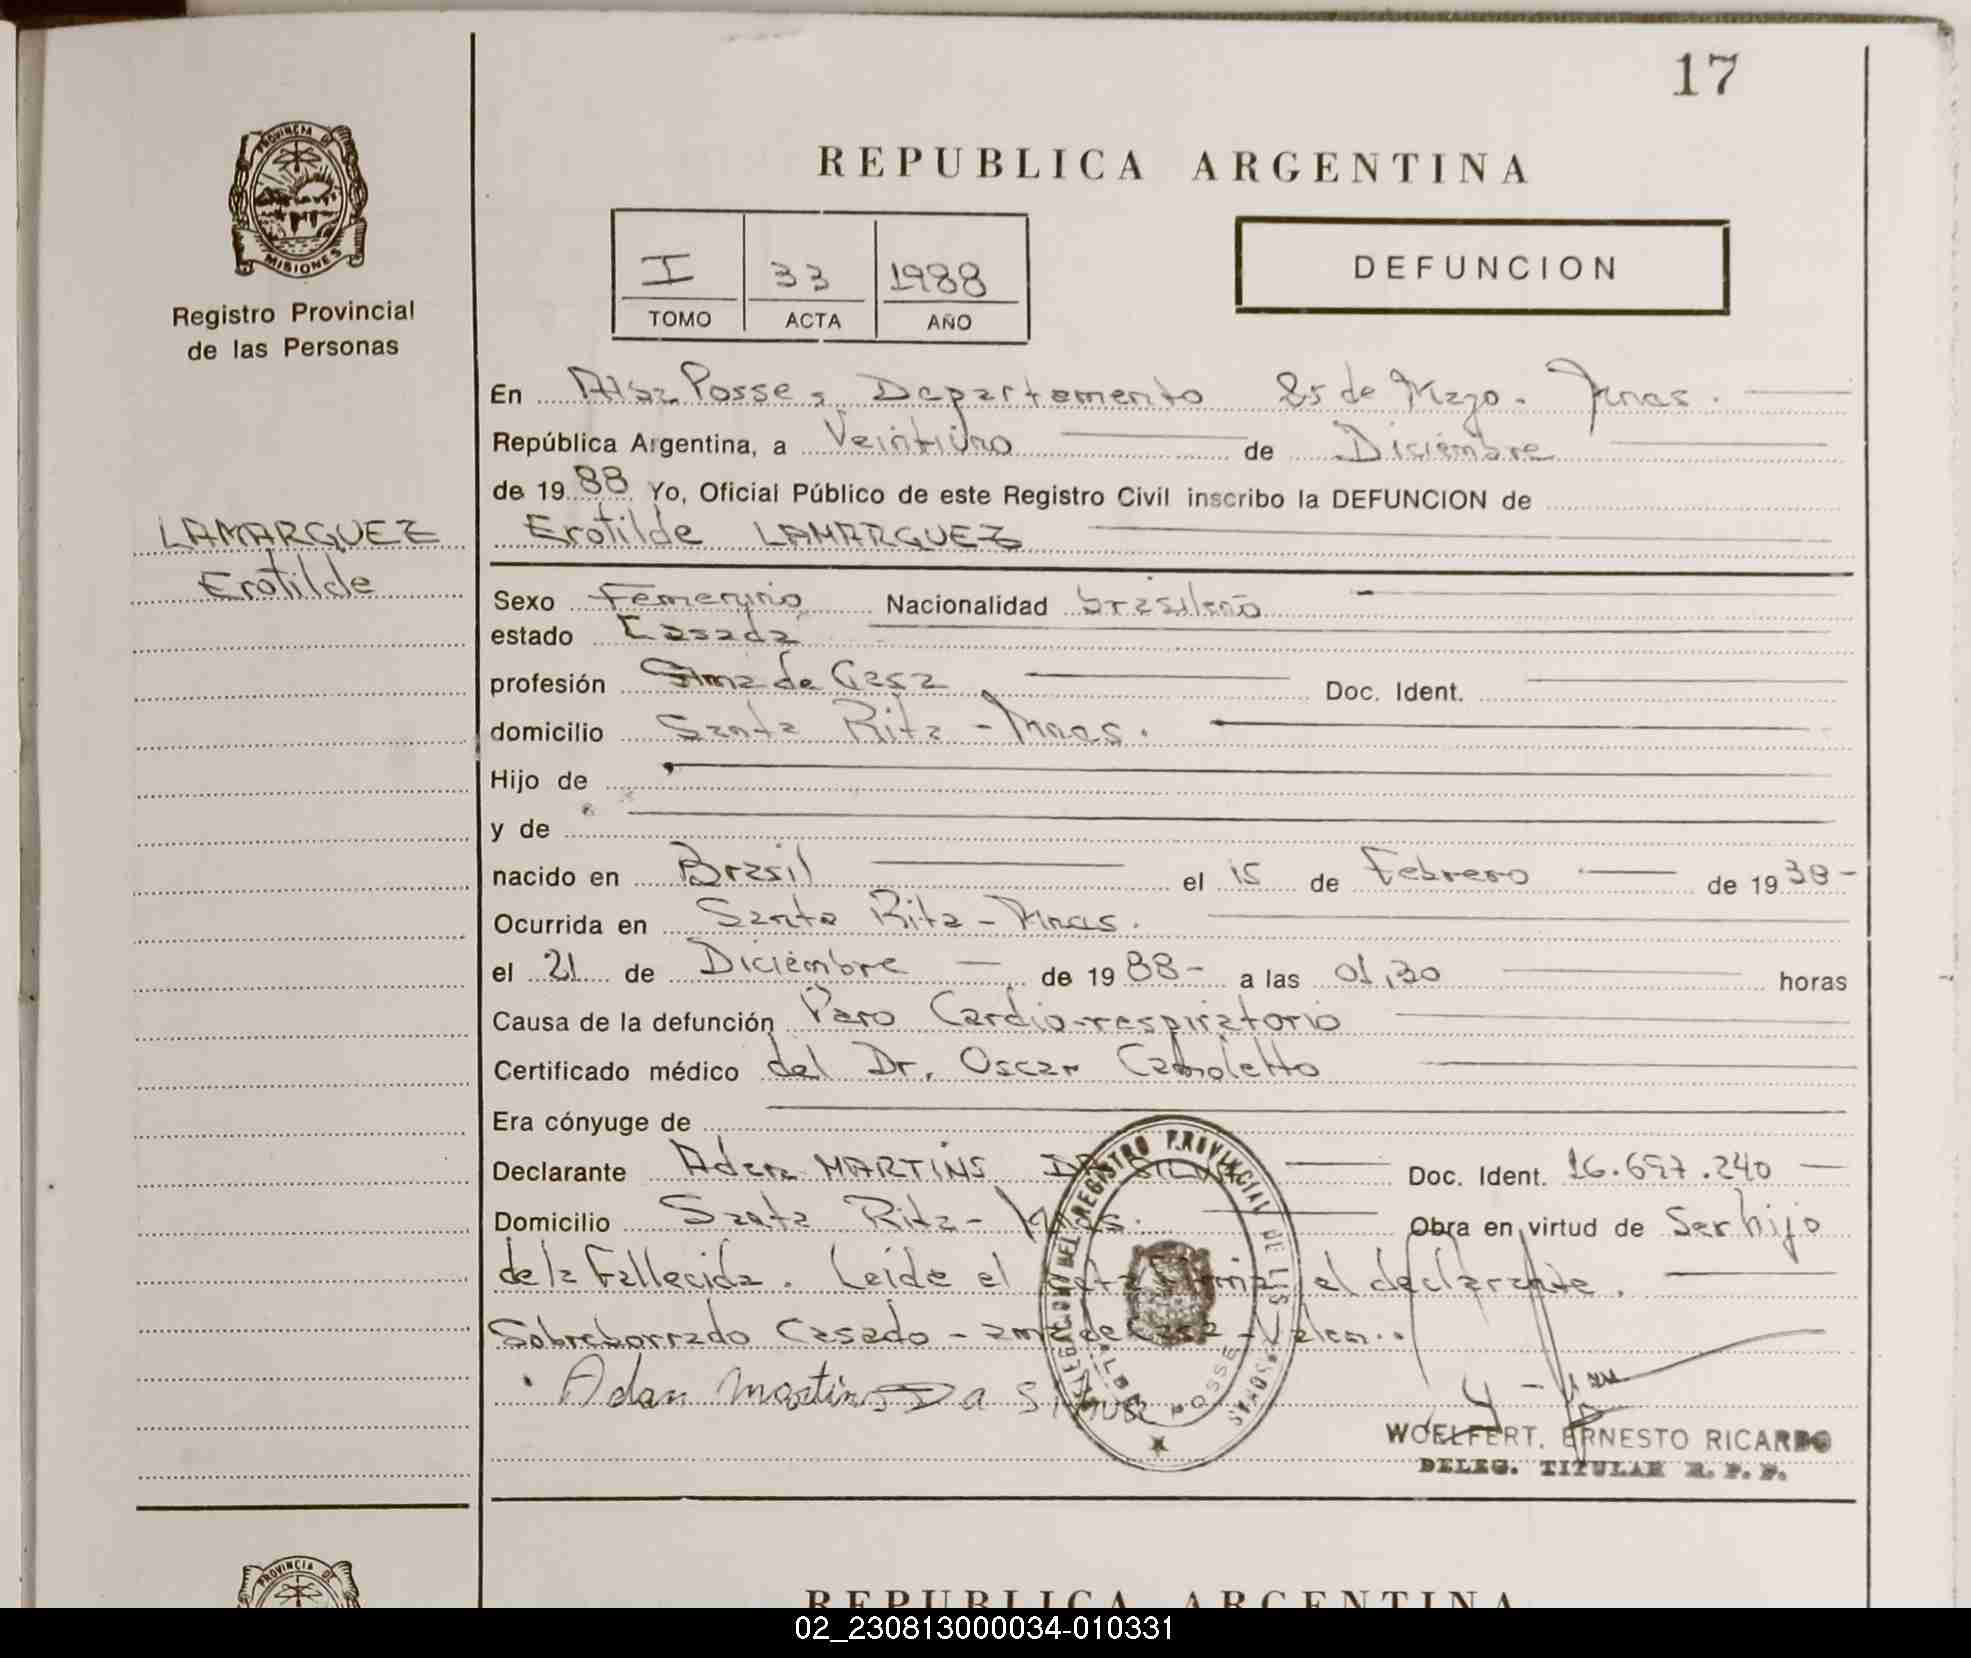 17
PROVINCIA DE
MISIONES
Registro Provincial
de las Personas
REPUBLICA ARGENTINA
I 33 1988
TOMO ACTA AÑO
DEFUNCION
En Alba Posse, Departamento 25 de Mayo. Mnes.
República Argentina, a Veintiuno de Diciembre
de 1988 Yo, Oficial Público de este Registro Civil inscribo la DEFUNCION de
LAMARQUEZ
Erotilde
Erotilde LAMARQUEZ
Sexo Femenino Nacionalidad brasileña
estado Casada
profesión Ama de Casa Doc. Ident.
domicilio Santa Rita - Mnes.
Hijo de
y de
nacido en Brasil el 15 de Febrero de 1938-
Ocurrida en Santa Rita - Mnes.
el 21 de Diciembre de 1988- a las 01,30 horas
Causa de la defunción Paro Cardio-respiratorio
Certificado médico del Dr. Oscar
Era cónyuge de
Declarante Adan MARTINS DA SILVA Doc. Ident. 16.697.240
Domicilio Santa Rita - Mnes. Obra en virtud de Ser hijo
de la Fallecida. Leida el acta firma el declarante.
Sobreborrado Casado - ama de Casa - Valen.
Adan Martins Da Silva
DELEGACION DEL REGISTRO PROVINCIAL DE LAS PERSONAS
ALBA POSSE
WOELFERT, ERNESTO RICARDO
DELEG. TITULAR R. P. P.
PROVINCIA DE
REPUBLICA ARGENTINA
02_230813000034-010331